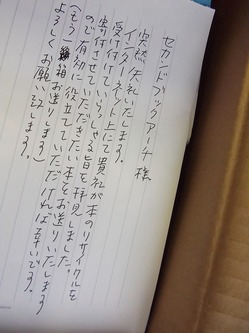 セカンドブックアーチ 様
突然失礼いたします。
インターネット上にて貴社が本のリサイクルを
受け付けていらっしゃる旨を拝見しました。
寄付させていただきたい本をお送りいたします
ので有効に役立てていただければ幸いです。
(もう一箱お送りします)
よろしくお願い致します。